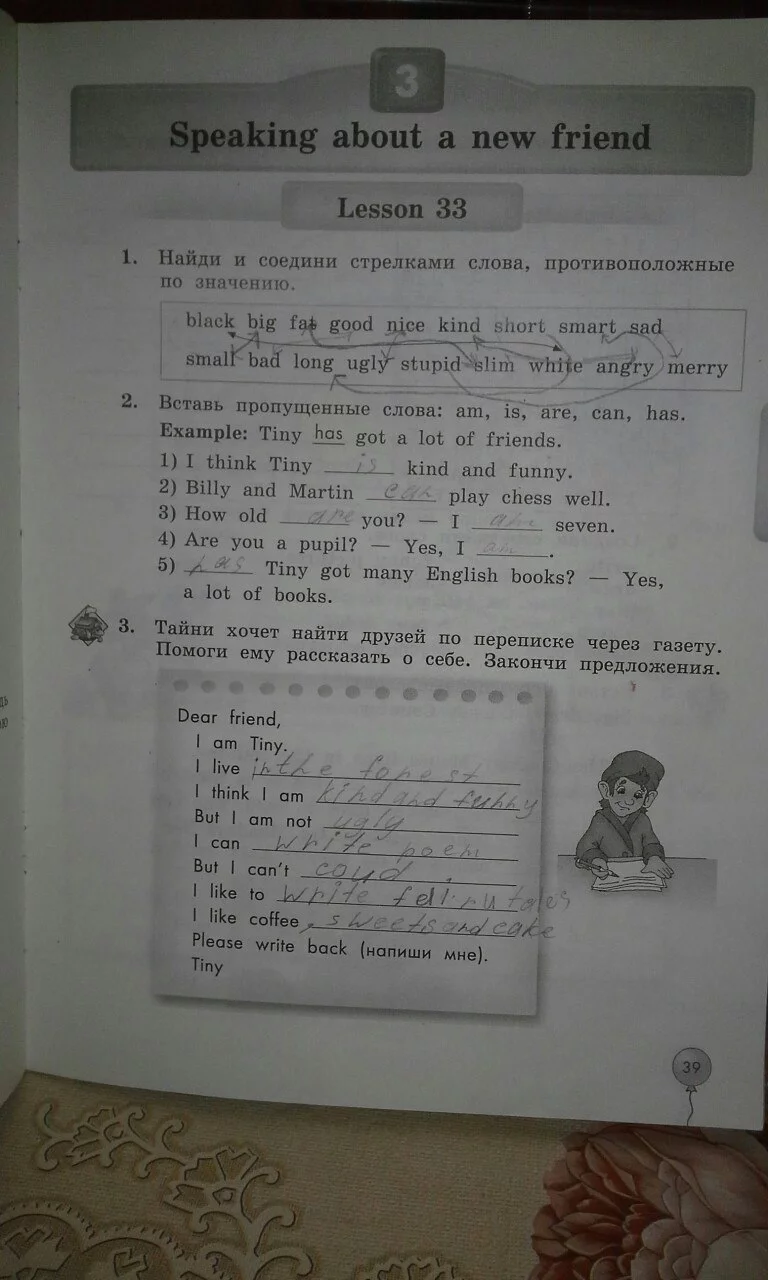 3
Speaking about a new friend
Lesson 33
1. Найди и соедини стрелками слова, противоположные
по значению.
black big fat good nice kind short smart sad
small bad long ugly stupid slim white angry merry
2. Вставь пропущенные слова: am, is, are, can, has.
Example: Tiny has got a lot of friends.
1) I think Tiny is kind and funny.
2) Billy and Martin can play chess well.
3) How old are you? — I am seven.
4) Are you a pupil? — Yes, I am.
5) has Tiny got many English books? — Yes,
a lot of books.
3. Тайни хочет найти друзей по переписке через газету.
Помоги ему рассказать о себе. Закончи предложения.
Dear friend,
I am Tiny.
I live in the forest
I think I am kind and funny
But I am not ugly
I can write poem
But I can't .
I like to write tales
I like coffee, sweets and cake
Please write back (напиши мне).
Tiny
39